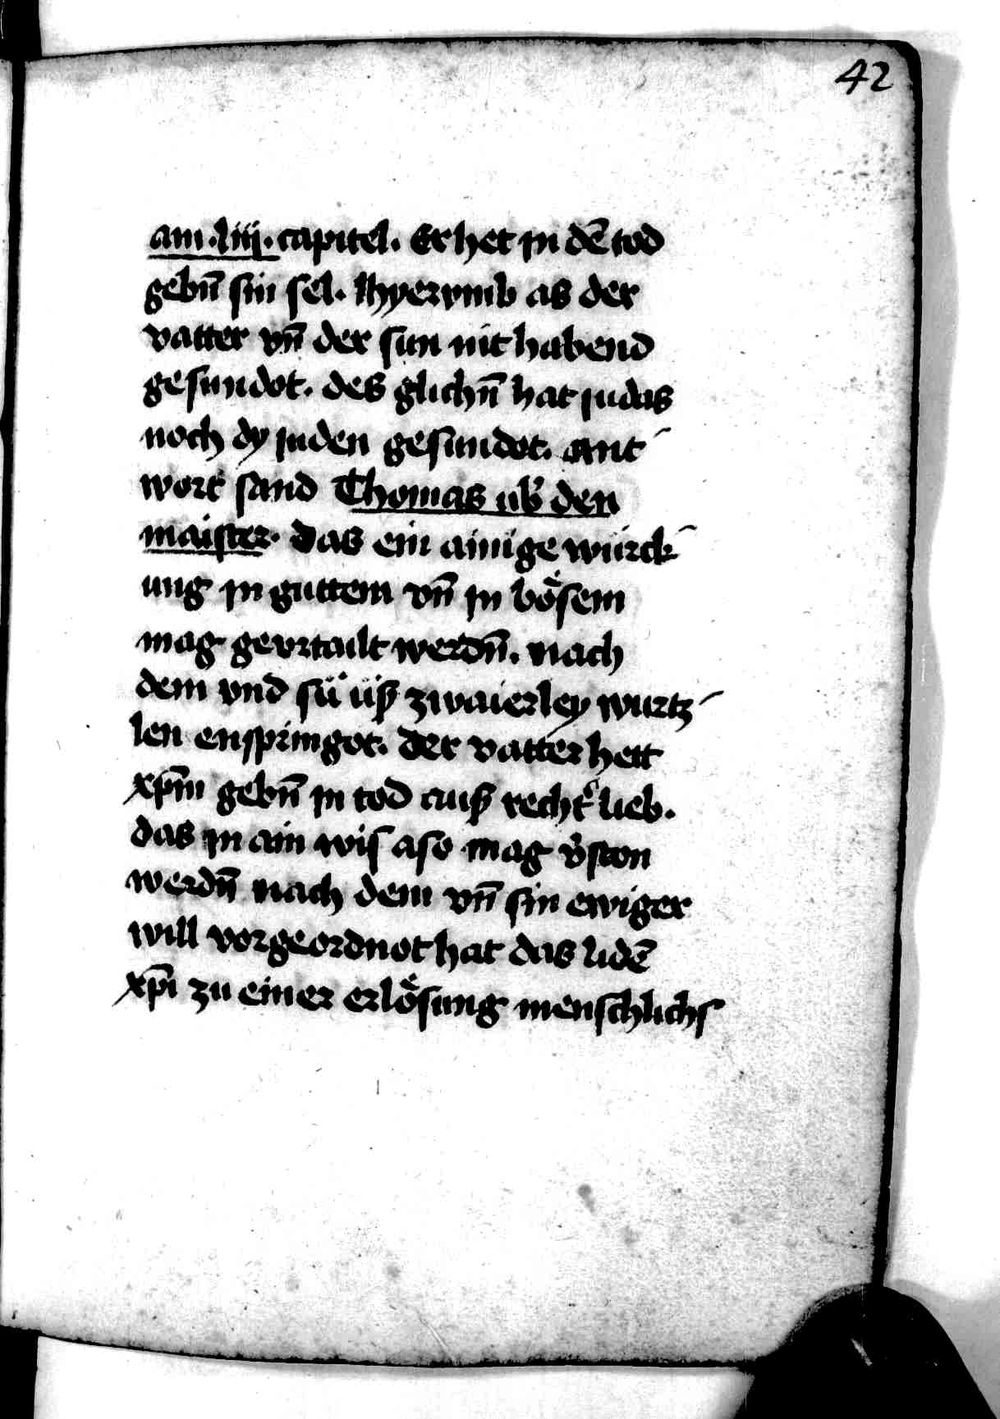 42
am .liij. capitel. Er het in dē tod
gebn̄ sin sel. Hyervmb as der
vatter vn̄ der sun nit habend
gesundot. des glichn̄ hat judas
noch dy juden gesundot. ant
wort sand Thomas üb̓ den
maister. Das ein ainige würck
ung in guttem vn̄ in bösem
mag gevrtailt werdn̄. nach
dem vnd sü üß zwaierley wurtz
len enspringot. Der vatter hett
xp̄m gebn̄ in tod auß recht̓ lieb.
das in ain wis aso mag v̓ston
werdn̄ nach dem vn̄ sin ewiger
will vorgeordnot hat das lidē
xp̄i zu einer erlösung menschlichs